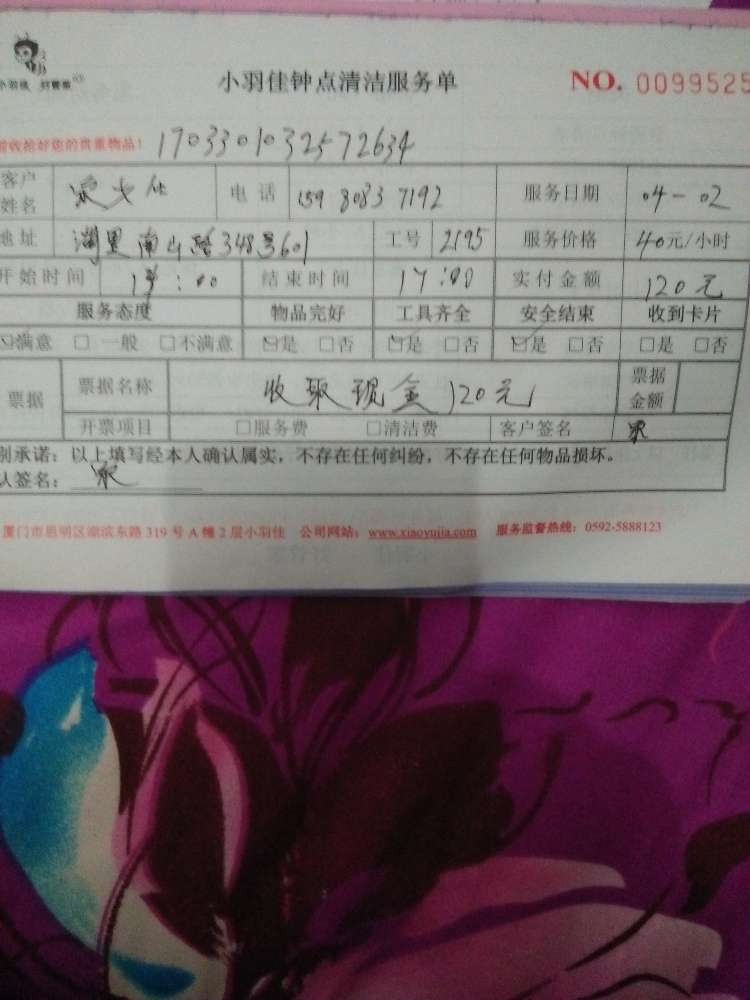 小羽佳钟点清洁服务单 NO. 0099525
小羽佳 好管家
请收拾好您的贵重物品! 1703301032572634
客户姓名 电话 159 8083 7192 服务日期 04-02
地址 湖里南山路348号601 工号 2195 服务价格 40元/小时
开始时间 :00 结束时间 17:00 实付金额 120元
服务态度 物品完好 工具齐全 安全结束 收到卡片
☑满意 □一般 □不满意 ☑是 □否 ☑是 □否 ☑是 □否 □是 □否
票据 票据名称 收取现金120元 票据金额
开票项目 □服务费 □清洁费 客户签名
别承诺：以上填写经本人确认属实，不存在任何纠纷，不存在任何物品损坏。
认签名：
厦门市思明区湖滨东路319号A幢2层小羽佳 公司网站：www.xiaoyujia.com 服务监督热线：0592-5888123